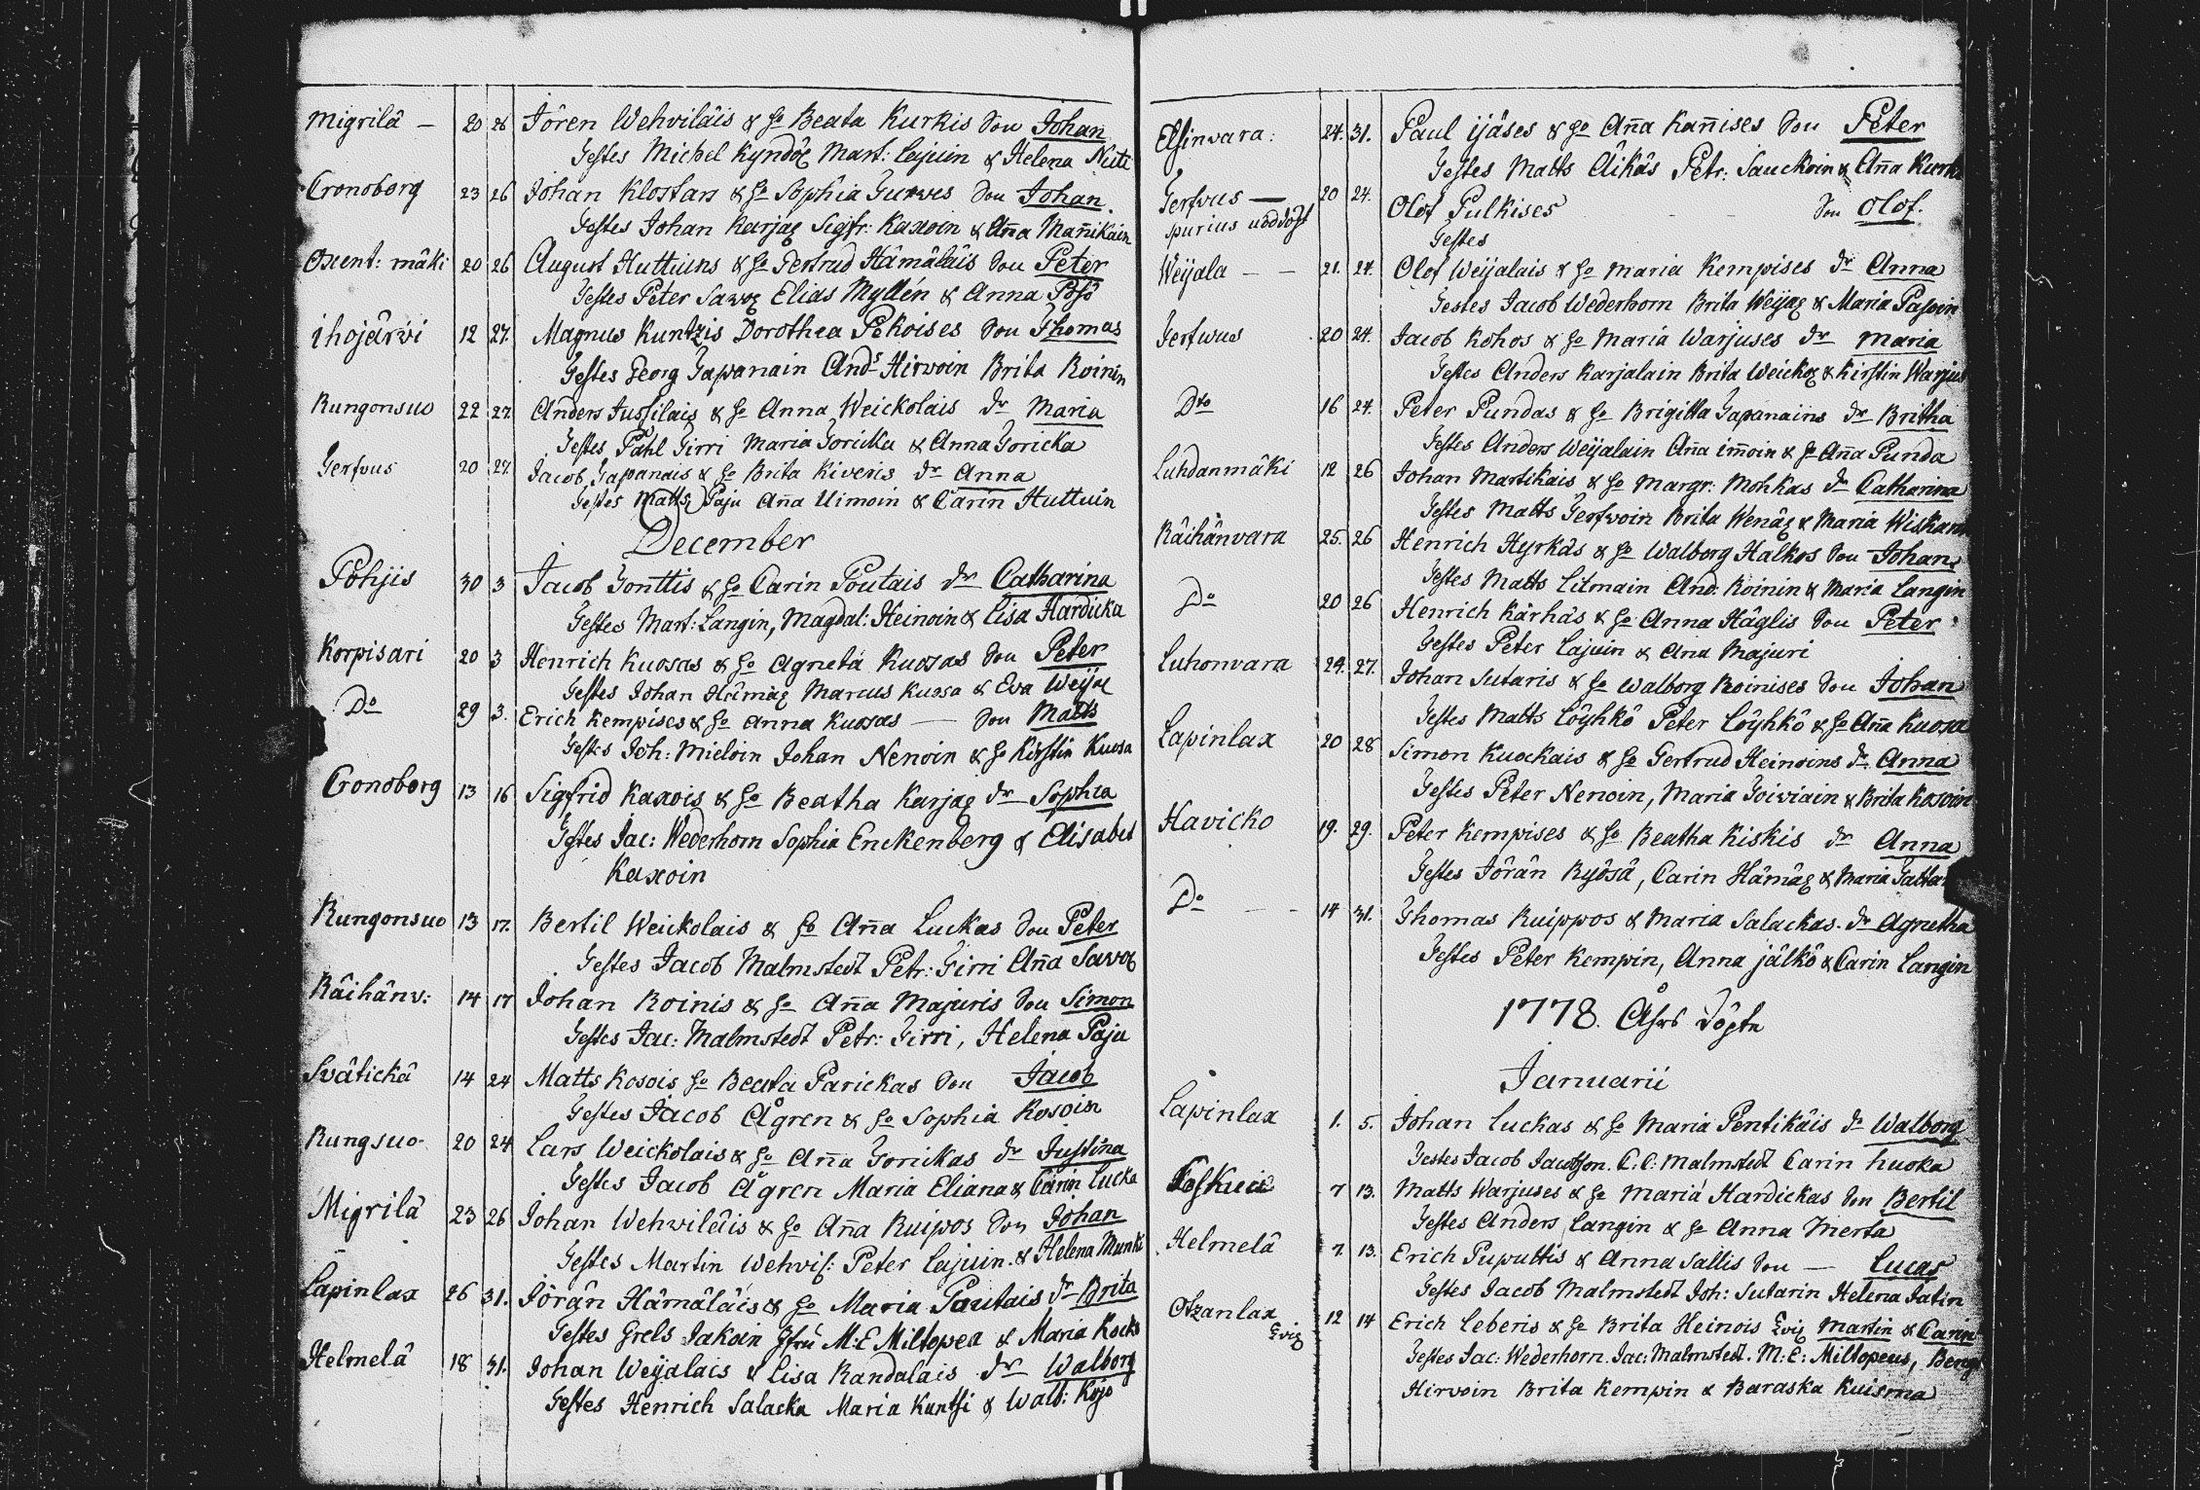 Migrilä — 20 26 Jören Wehviläis & h:o Beata Kurkis Son Johan
Testes Michel Kyndög Mart: Lajuin & Helena Niute
Cronoborg 23 26 Johan Klostars & h:o Sophia Gurves Son Johan.
Testes Johan Karjag Sigfr: Kaxoin & Aña Mañikain
Oxent: mäki 20 26 August Huttiuns & h:o Gertrud Hämäläis Son Peter
Testes Peter Sawog Elias Myllén & Anna Pösö
ihojärvi 12 27. Magnus Kuntzis Dorothea Pekoises Son Thomas
Testes Georg Tapanain And:s Hirvoin Brita Roinin
Rungonsuo 22 27. Anders Jussilais & h:o Anna Weickolais dr Maria
Testes Påhl Girri Maria Goricka & Anna Goricka
Terfvus 20 27. Jacob Tapanais & h:o Brita Kiveris dr Anna
Testes Matts Paju Aña Uimoin & Carin Huttuin
December
Pohjis 30 3 Jacob Tonttis & h:o Carin Poutais dr Catharina
Testes Mart: Langin, Magdal: Heinoin & Lisa Hardicka
Korpisari 20 3 Henrich Kuosas & h:o Agneta Kuosas Son Peter
Testes Johan Hämäg Marcus Kuosa & Eva Weijal
Do 29 3. Erich Kempises & h:o Anna Kuosas — Son Matts
Testes Joh: Mieloin Johan Nenoin & h:o Kirstin Kuosa
Cronoborg 13 16 Sigfrid Kaxois & h:o Beatha Karjag dr Sophia
Testes Jac: Wederhorn Sophia Enckenberg & Elisabet
Kaxoin
Rungonsuo 13 17. Bertil Weickolais & h:o Aña Luckas Son Peter
Testes Jacob Malmstedt Petr: Girri Aña Sawog
Räihänv: 14 17 Johan Roinis & h:o Aña Majuris Son Simon
Testes Jac: Malmstedt Petr: Girri, Helena Paju
Svätickä 14 24 Matts Kosois h:o Beata Parickas Son Jacob
Testes Jacob Ågren & h:o Sophia Kosoin
Rungsuo 20 24 Lars Weickolais & h:o Aña Gorickas dr Justina
Testes Jacob Ågren Maria Eliana & Carin Lucka
Migrilä 23 26 Johan Wehviläis & h:o Aña Ruipos Son Johan
Testes Martin Wehvil: Peter Lajuin & Helena Munk
Lapinlax 26 31. Jörän Hämäläis & h:o Maria Poutais dr Brita
Testes Grels Jakoin Jfru M:E Miltopea & Maria Kocko
Helmelä 18 31. Johan Weijalais & Lisa Randalais dr Walborg
Testes Henrich Salacka Maria Kuntsi & Walb: Kojo
Elsinvara: 24. 31. Paul ijäses & h:o Aña Kañises Son Peter
Testes Matts Äikäs Petr: Sauckoin & Aña Kurk
Terfvus — 20 24. Olof Pulkises Son Olof.
spurius nöddöpt
Testes
Weijala — — 21. 24. Olof Weijalais & h:o Maria Kempises dr Anna
Testes Jacob Wederhorn Brita Weijag & Maria Pasoin
Terfwus 20 24. Jacob Kohos & h:o Maria Warjuses dr Maria
Testes Anders Karjalain Brita Weickog & Kirstin Warjus
Dto 16 24. Peter Pundas & h:o Brigitta Tapanains dr Britha
Testes Anders Weijalain Aña imoin & h:o Aña Punda
Luhdanmäki 12 26 Johan Martikais & h:o Margr: Mohkas dr Catharina
Testes Matts Terfvoin Brita Wenäg & Maria Wiskar
Räihänvara 25. 26 Henrich Hyrkäs & h:o Walborg Halkos Son Johan.
Testes Matts Litmain And: Roinin & Maria Langin
Do 20 26 Henrich Kärhäs & h:o Anna Häglis Son Peter
Testes Peter Lajuin & Ana Majuri
Luhonvara 24. 27. Johan Sutaris & h:o Walborg Roinises Son Johan
Testes Matts Löyhkö Peter Löyhkö & h:o Aña Kuosa
Lapinlax 20 28 Simon Kuockais & h:o Gertrud Heinoins dr Anna
Testes Peter Nenoin, Maria Toiviain & Brita Kosoin
Havicko 19. 29. Peter Kempises & h:o Beatha Kiskis dr Anna
Testes Jörän Ryösä, Carin Hämäg & Maria
Do — — 14 31. Thomas Ruippos & Maria Salackas. dr Agnetha
Testes Peter Kempin, Anna jälkö & Carin Langin
1778. Åhrs Döpte
Januarii
Lapinlax 1. 5. Johan Luckas & h:o Maria Pentikäis dr Walborg
Testes Jacob Jacobson. C. C: Malmstedt Carin huoka
Toskua 7 13. Matts Warjuses & h:o Maria Hardickas Son Bertil
Testes Anders Langin & h:o Anna Merta
Helmelä 7. 13. Erich Puputtis & Anna Sallis Son — Lucas
Testes Jacob Malmstedt Joh: Sutarin Helena Jatin
Otzanlax 12 14 Erich Leberis & h:o Brita Heinois Tvig Martin & Carin
Tvig
Testes Jac: Wederhorn. Jac: Malmstedt. M: E: Miltopeus, Beng
Hirvoin Brita Kempin & Baraska Kuisma